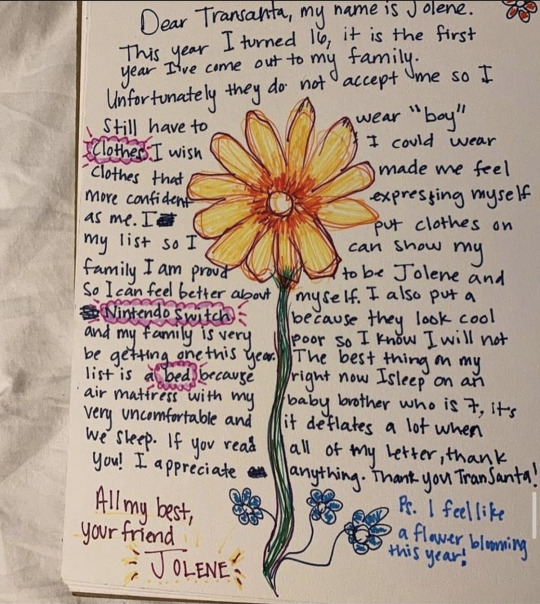 Dear Transanta, my name is Jolene.
This year I turned 16, it is the first
year I've come out to my family.
Unfortunately they do not accept me so I
Still have to wear "boy"
Clothes. I wish I could wear
clothes that made me feel
more confident expressing myself
as me. I put clothes on
my list so I can show my
family I am proud to be Jolene and
So I can feel better about myself. I also put a
Nintendo Switch because they look cool
and my family is very poor so I know I will not
be getting one this year. The best thing on my
list is a bed because right now I sleep on an
air mattress with my baby brother who is 7, it's
very uncomfortable and it deflates a lot when
we sleep. If you read all of my letter, thank
you! I appreciate anything. Thank you TranSanta!
All my best,
your friend
JOLENE
Ps. I feel like
a flower blooming
this year!